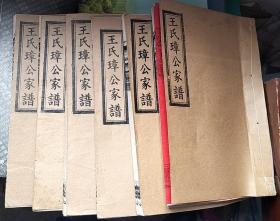 王氏璋公家譜
王氏璋公家譜
王氏璋公家譜
王氏璋公家譜
王氏璋公家譜
王氏璋公家譜